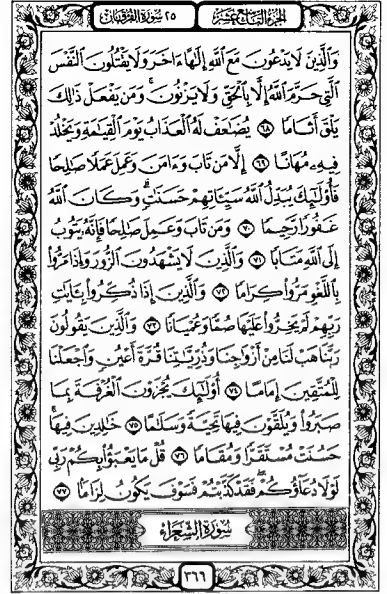 الجزء التاسع عشر ٢٥ سورة الفرقان
وَالَّذِينَ لَا يَدْعُونَ مَعَ اللَّهِ إِلَٰهًا ءَاخَرَ وَلَا يَقْتُلُونَ النَّفْسَ
الَّتِي حَرَّمَ اللَّهُ إِلَّا بِالْحَقِّ وَلَا يَزْنُونَ ۚ وَمَن يَفْعَلْ ذَٰلِكَ
يَلْقَ أَثَامًا ٦٨ يُضَٰعَفْ لَهُ الْعَذَابُ يَوْمَ الْقِيَٰمَةِ وَيَخْلُدْ
فِيهِ مُهَانًا ٦٩ إِلَّا مَن تَابَ وَءَامَنَ وَعَمِلَ عَمَلًا صَٰلِحًا
فَأُو۟لَٰٓئِكَ يُبَدِّلُ اللَّهُ سَيِّـَٔاتِهِمْ حَسَنَٰتٍ ۗ وَكَانَ اللَّهُ
غَفُورًا رَّحِيمًا ٧٠ وَمَن تَابَ وَعَمِلَ صَٰلِحًا فَإِنَّهُ يَتُوبُ
إِلَى اللَّهِ مَتَابًا ٧١ وَالَّذِينَ لَا يَشْهَدُونَ الزُّورَ وَإِذَا مَرُّوا
بِاللَّغْوِ مَرُّوا كِرَامًا ٧٢ وَالَّذِينَ إِذَا ذُكِّرُوا بِـَٔايَٰتِ
رَبِّهِمْ لَمْ يَخِرُّوا عَلَيْهَا صُمًّا وَعُمْيَانًا ٧٣ وَالَّذِينَ يَقُولُونَ
رَبَّنَا هَبْ لَنَا مِنْ أَزْوَٰجِنَا وَذُرِّيَّٰتِنَا قُرَّةَ أَعْيُنٍ وَاجْعَلْنَا
لِلْمُتَّقِينَ إِمَامًا ٧٤ أُو۟لَٰٓئِكَ يُجْزَوْنَ الْغُرْفَةَ بِمَا
صَبَرُوا وَيُلَقَّوْنَ فِيهَا تَحِيَّةً وَسَلَٰمًا ٧٥ خَٰلِدِينَ فِيهَا ۚ
حَسُنَتْ مُسْتَقَرًّا وَمُقَامًا ٧٦ قُلْ مَا يَعْبَؤُا بِكُمْ رَبِّي
لَوْلَا دُعَاؤُكُمْ ۖ فَقَدْ كَذَّبْتُمْ فَسَوْفَ يَكُونُ لِزَامًا ٧٧
سورة الشعراء
٣٦٦